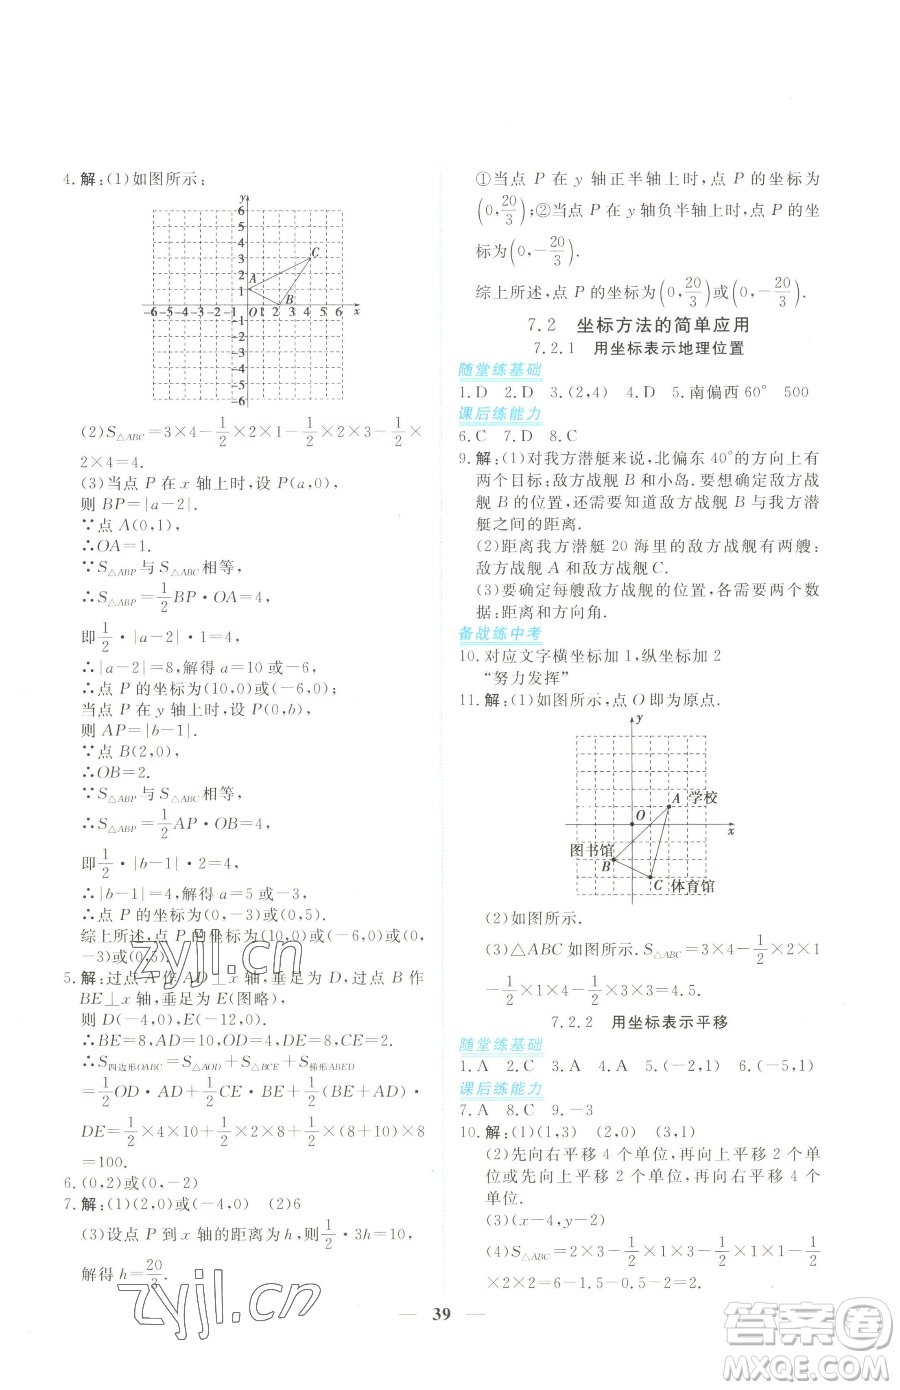 4. 解:(1)如图所示:
y
6
5
4
3
2
1
A
B
C
-6-5-4-3-2-1 O 1 2 3 4 5 6 x
-1
-2
-3
-4
-5
-6
(2)S△ABC=3×4-1/2×2×1-1/2×2×3-1/2×
2×4=4.
(3)当点 P 在 x 轴上时,设 P(a,0),
则 BP=|a-2|.
∵点 A(0,1),
∴OA=1.
∵S△ABP与 S△ABC相等,
∴S△ABP=1/2BP·OA=4,
即1/2·|a-2|·1=4,
∴|a-2|=8,解得 a=10 或 a=-6,
∴点 P 的坐标为(10,0)或(-6,0);
当点 P 在 y 轴上时,设 P(0,b),
则 AP=|b-1|.
∵点 B(2,0),
∴OB=2.
∵S△ABP与 S△ABC相等,
∴S△ABP=1/2AP·OB=4,
即1/2·|b-1|·2=4,
∴|b-1|=4,解得 a=5 或-3,
∴点 P 的坐标为(0,-3)或(0,5).
综上所述,点 P 的坐标为(10,0)或(-6,0)或(0,
-3)或(0,5).
5. 解:过点 A 作 AD⊥x 轴,垂足为 D,过点 B 作
BE⊥x 轴,垂足为 E(图略),
则 D(-4,0),E(-12,0).
∴BE=8,AD=10,OD=4,CE=2.
∴S四边形OABC=S△AOD+S△BCE+S梯形ABED
=1/2OD·AD+1/2CE·BE+1/2(BE+AD)·
DE=1/2×4×10+1/2×2×8+1/2×(8+10)×8
=100.
6. (0,2)或(0,-2)
7. 解:(1)(2,0)或(-4,0) (2)6
(3)设点 P 到 x 轴的距离为 h,则1/2·3h=10,
解得 h=20/3.
①当点 P 在 y 轴正半轴上时,点 P 的坐标为
(0,20/3);②当点 P 在 y 轴负半轴上时,点 P 的坐
标为(0,-20/3).
综上所述,点 P 的坐标为(0,20/3)或(0,-20/3).
7.2 坐标方法的简单应用
7.2.1 用坐标表示地理位置
随堂练基础
1. D 2. D 3. (2,4) 4. D 5. 南偏西 60° 500
课后练能力
6. C 7. D 8. C
9. 解:(1)对我方潜艇来说,北偏东 40°的方向上有
两个目标:敌方战舰 B 和小岛.要想确定敌方战
舰 B 的位置,还需要知道敌方战舰 B 与我方潜
艇之间的距离.
(2)距离我方潜艇 20 海里的敌方战舰有两艘:
敌方战舰 A 和敌方战舰 C.
(3)要确定每艘敌方战舰的位置,各需要两个数
据:距离和方向角.
备战练中考
10. 对应文字横坐标加 1,纵坐标加 2
“努力发挥”
11. 解:(1)如图所示,点 O 即为原点.
y
A 学校
O
x
图书馆
B
C 体育馆
(2)如图所示.
(3)△ABC 如图所示.S△ABC=3×4-1/2×2×1
-1/2×1×4-1/2×3×3=4.5.
7.2.2 用坐标表示平移
随堂练基础
1. A 2. C 3. A 4. A 5. (-2,1) 6. (-5,1)
课后练能力
7. A 8. C 9. -3
10. 解:(1)(1,3) (2,0) (3,1)
(2)先向右平移 4 个单位,再向上平移 2 个单
位或先向上平移 2 个单位,再向右平移 4 个
单位.
(3)(x-4,y-2)
(4)S△ABC=2×3-1/2×1×3-1/2×1×1-1/2
×2×2=6-1.5-0.5-2=2.
39
zyjl.cn
zyjl.cn
答案圈
MXQE.COM